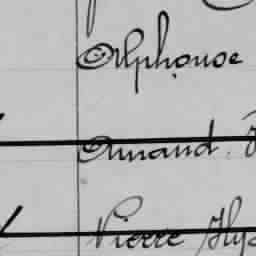 Alphonse
Armand
Pierre Hya